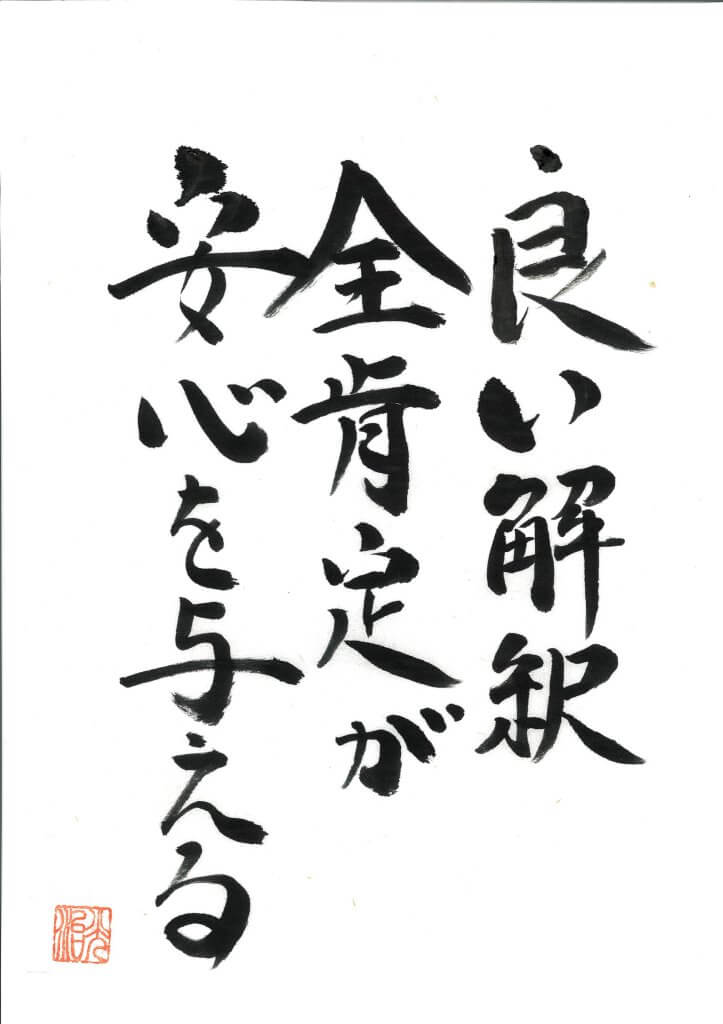 良い解釈
全肯定が
安心を与える